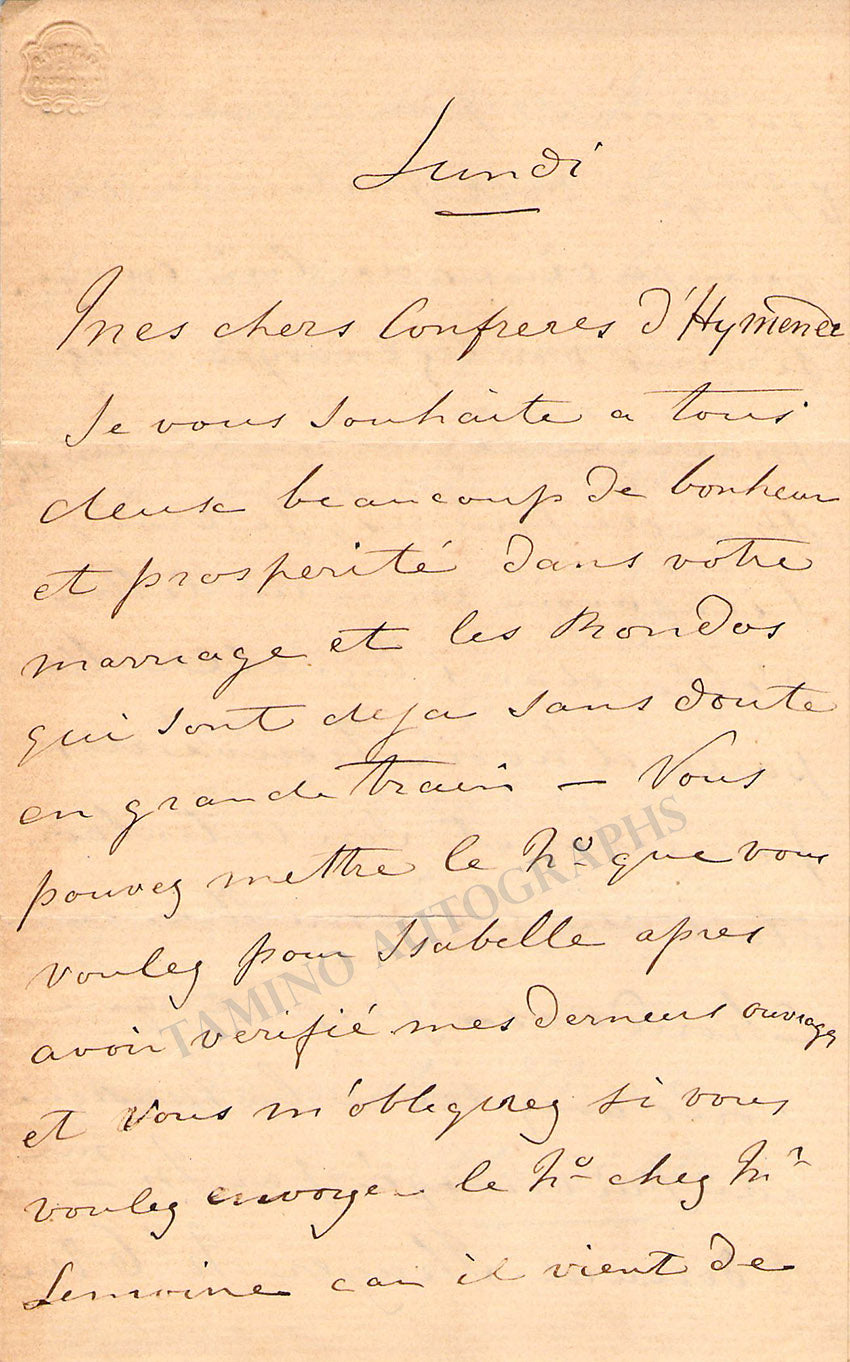 Lundi
Mes chers Confreres d'Hymenée
Je vous souhaite a tous
deux beaucoup de bonheur
et prosperité dans votre
marriage et les Rondos
qui sont deja sans doute
en grande train — Vous
pouvez mettre le No que vous
voulez pour Isabelle apres
avoir verifié mes derneurs ouvrages
et vous m'obligerez si vous
voulez envoyer le No chez Mr
Lemoine car il vient de
TAMINO AUTOGRAPHS